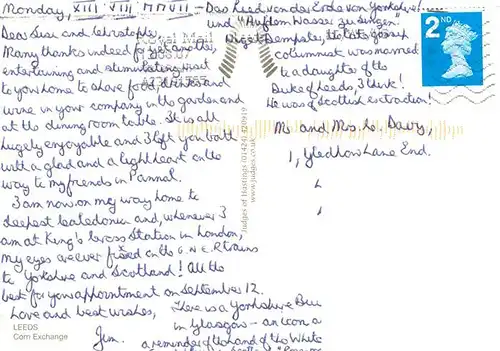 Monday, XIII VIII MMVII
Dear Susi and Christopher,
Many thanks indeed for yet another,
entertaining and stimulating visit
to your home to share food, drinks and
wine in your company in the garden and
at the dining room table. It is all
hugely enjoyable and I left you both
with a glad and a light heart on the
way to my friends in Pannal.
I am now on my way home to
deepest Caledonia and, whenever I
am at King's Cross Station in London,
my eyes are ever fixed on the G.N.E.R trains
to Yorkshire and Scotland! All the
best for your appointment on September 12.
Love and best wishes,
Jim.
There is a Yorkshire
in Glasgow - an icon
a reminder of the land of the White
LEEDS
Corn Exchange
Das Lied von der Erde von Yorkshire!
und "Auf dem Wasser zu singen"
Nigel Dempster, the late gossip
columnist was married
to a daughter of the
Duke of Leeds, I think!
He was of Scottish extraction!
Royal Mail
2ND
Judges of Hastings (01424) 420919
www.judges.co.uk
Mr and Mrs
1, Gledhow Lane End.